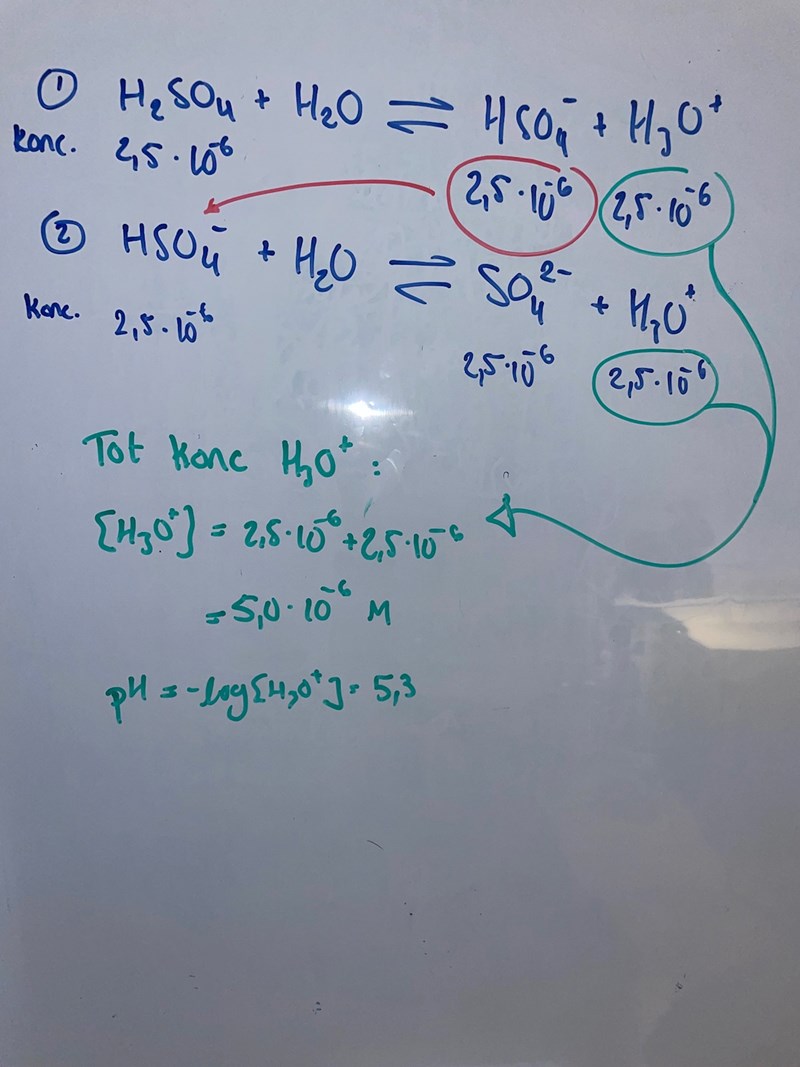 ① H₂SO₄ + H₂O ⇌ HSO₄⁻ + H₃O⁺
Konc. 2,5·10⁻⁶ 2,5·10⁻⁶ 2,5·10⁻⁶
② HSO₄⁻ + H₂O ⇌ SO₄²⁻ + H₃O⁺
Konc. 2,5·10⁻⁶ 2,5·10⁻⁶ 2,5·10⁻⁶
Tot Konc H₃O⁺:
[H₃O⁺] = 2,5·10⁻⁶+2,5·10⁻⁶
= 5,0·10⁻⁶ M
pH = -log[H₃O⁺] = 5,3